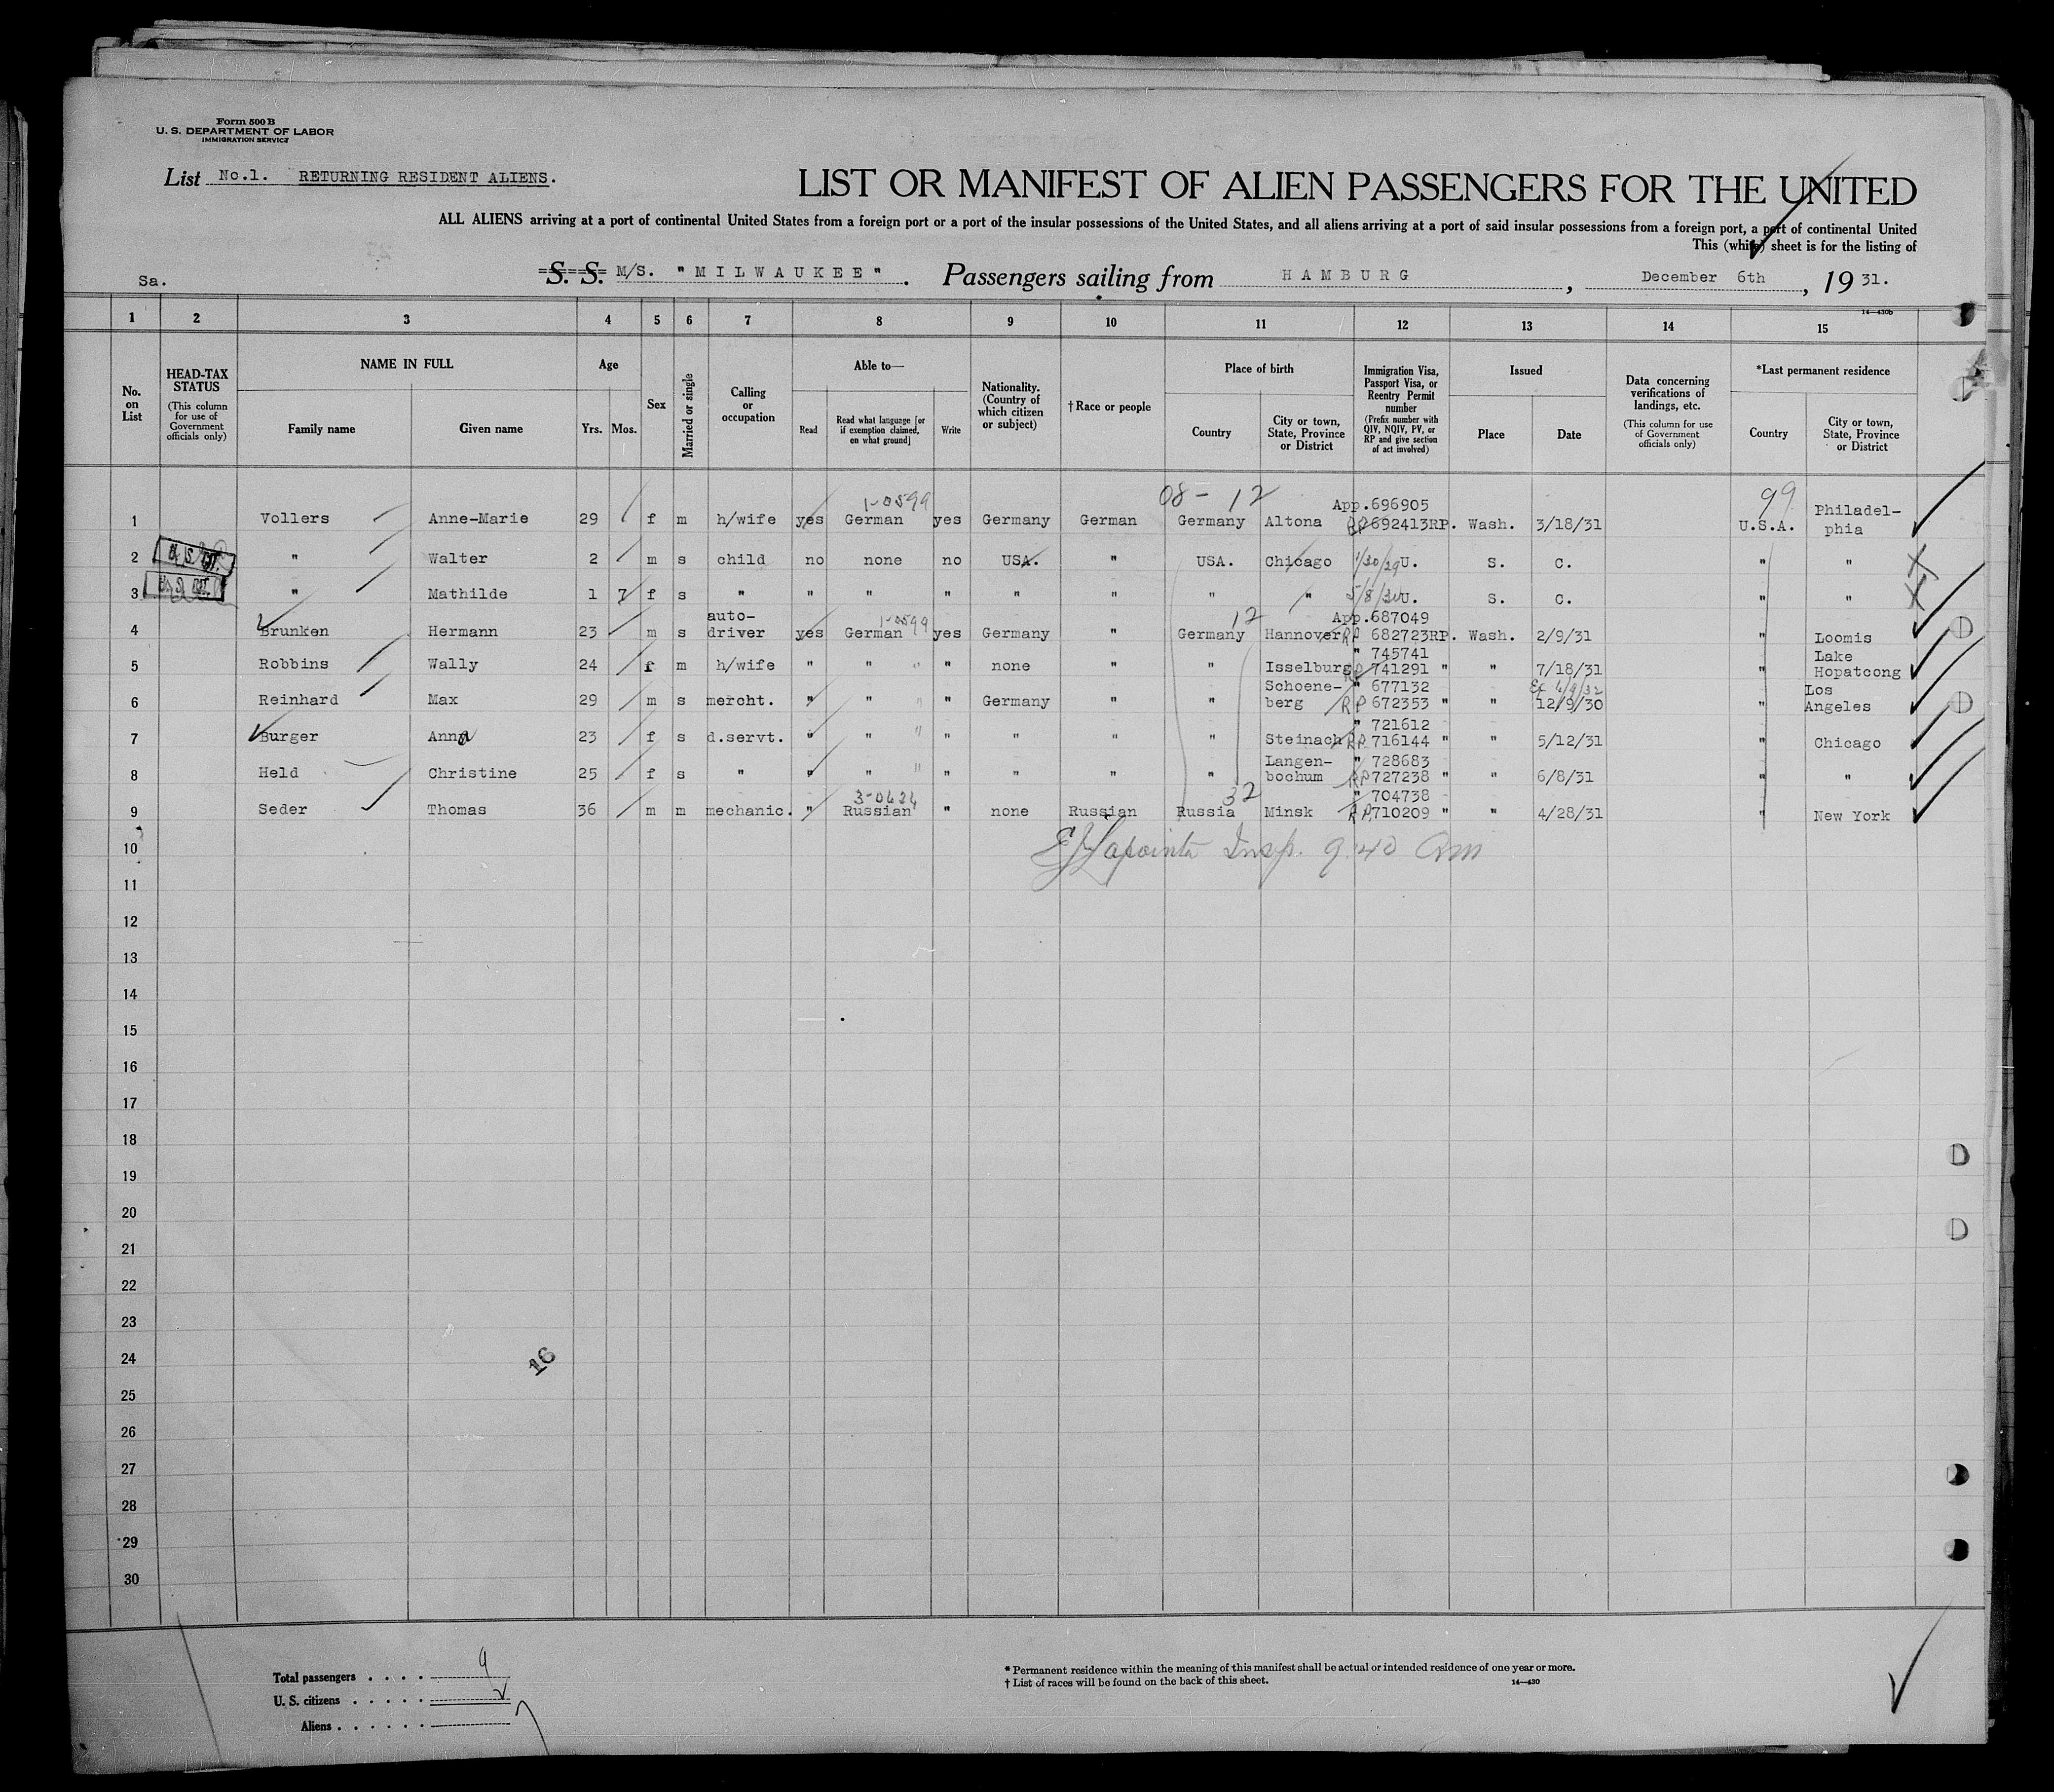 Form 500 B
U. S. DEPARTMENT OF LABOR
IMMIGRATION SERVICE
List No.1. RETURNING RESIDENT ALIENS.
LIST OR MANIFEST OF ALIEN PASSENGERS FOR THE UNITED
ALL ALIENS arriving at a port of continental United States from a foreign port or a port of the insular possessions of the United States, and all aliens arriving at a port of said insular possessions from a foreign port, a port of continental United
This (white) sheet is for the listing of
Sa. S. S. M/S. "MILWAUKEE". Passengers sailing from HAMBURG, December 6th, 1931.
14—430b
1 2 3 4 5 6 7 8 9 10 11 12 13 14 15
No. on List
HEAD-TAX STATUS (This column for use of Government officials only)
NAME IN FULL Family name Given name
Age Yrs. Mos.
Sex
Married or single
Calling or occupation
Able to— Read Read what language [or if exemption claimed, on what ground] Write
Nationality. (Country of which citizen or subject)
†Race or people
Place of birth Country City or town, State, Province or District
Immigration Visa, Passport Visa, or Reentry Permit number (Prefix number with QIV, NQIV, PV, or RP and give section of act involved)
Issued Place Date
Data concerning verifications of landings, etc. (This column for use of Government officials only)
*Last permanent residence Country City or town, State, Province or District
1-0599 08- 12 App.696905 99 Philadel-
1 Vollers Anne-Marie 29 f m h/wife yes German yes Germany German Germany Altona RP692413RP. Wash. 3/18/31 U.S.A. phia
2 U.S. CIT. " Walter 2 m s child no none no USA. " USA. Chicago 1/30/29 U. S. C. " "
3 U.S. CIT. " Mathilde 1 7 f s " " " " " " " " 5/8/30 U. S. C. " "
auto- 1-0599 12 App.687049
4 Brunken Hermann 23 m s driver yes German yes Germany " Germany Hannover RP 682723RP. Wash. 2/9/31 " Loomis
" 745741 Lake
5 Robbins Wally 24 f m h/wife " " " none " " Isselburg RP 741291 " " 7/18/31 " Hopatcong
Schoene- " 677132 Ex 4/9/32 Los
6 Reinhard Max 29 m s mercht. " " " Germany " " berg RP 672353 " " 12/9/30 " Angeles
" 721612
7 Burger Anna 23 f s d.servt. " " " " " " Steinach RP 716144 " " 5/12/31 " Chicago
Langen- " 728683
8 Held Christine 25 f s " " " " " " " bochum RP727238 " " 6/8/31 " "
3-0624 32 " 704738
9 Seder Thomas 36 m m mechanic. " Russian " none Russian Russia Minsk RP710209 " " 4/28/31 " New York
10 E J Lapointe Insp. 9.40 am
11
12
13
14
15
16
17
18
19
20
21
22
23
24
16
25
26
27
28
29
30
Total passengers . . . . 9
U. S. citizens . . . . . 2
Aliens . . . . . . 7
* Permanent residence within the meaning of this manifest shall be actual or intended residence of one year or more.
† List of races will be found on the back of this sheet. 14—430